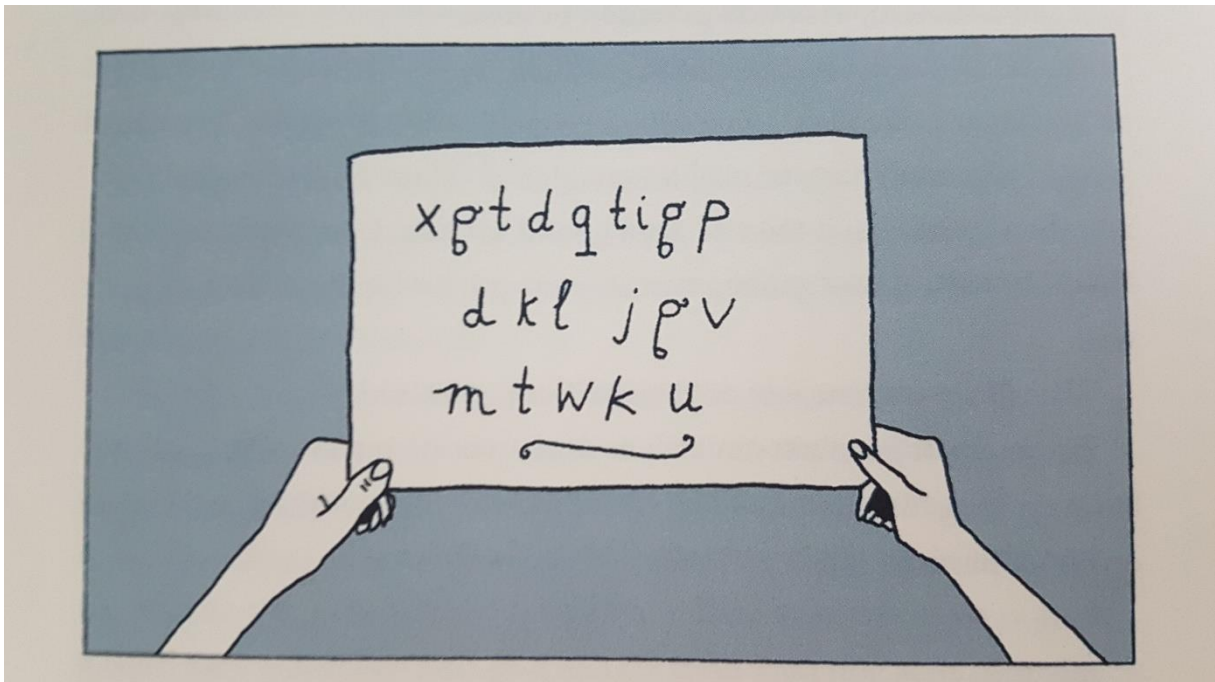 xgtdqtigp
dkl jgv
mtwku